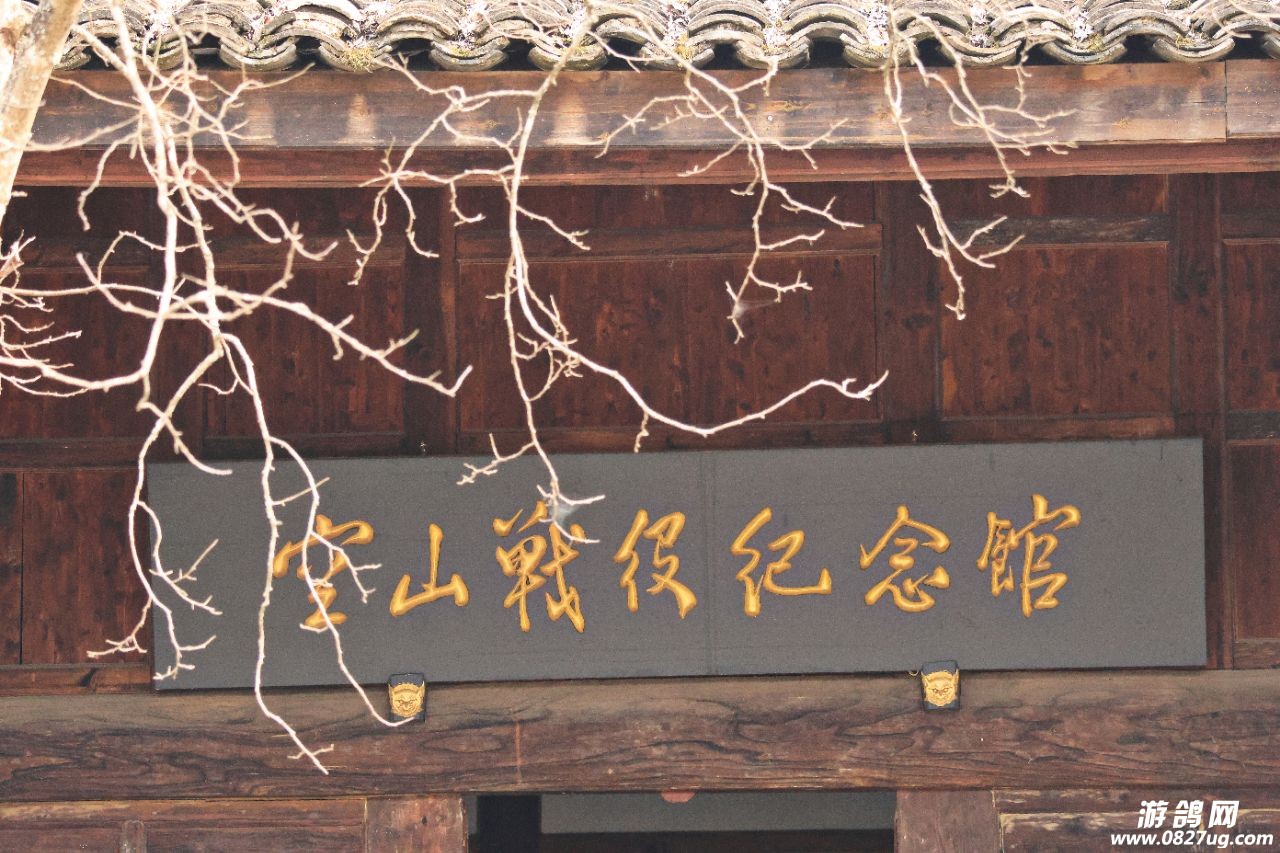 空山戰役纪念館
游鸽网
www.0827ug.com